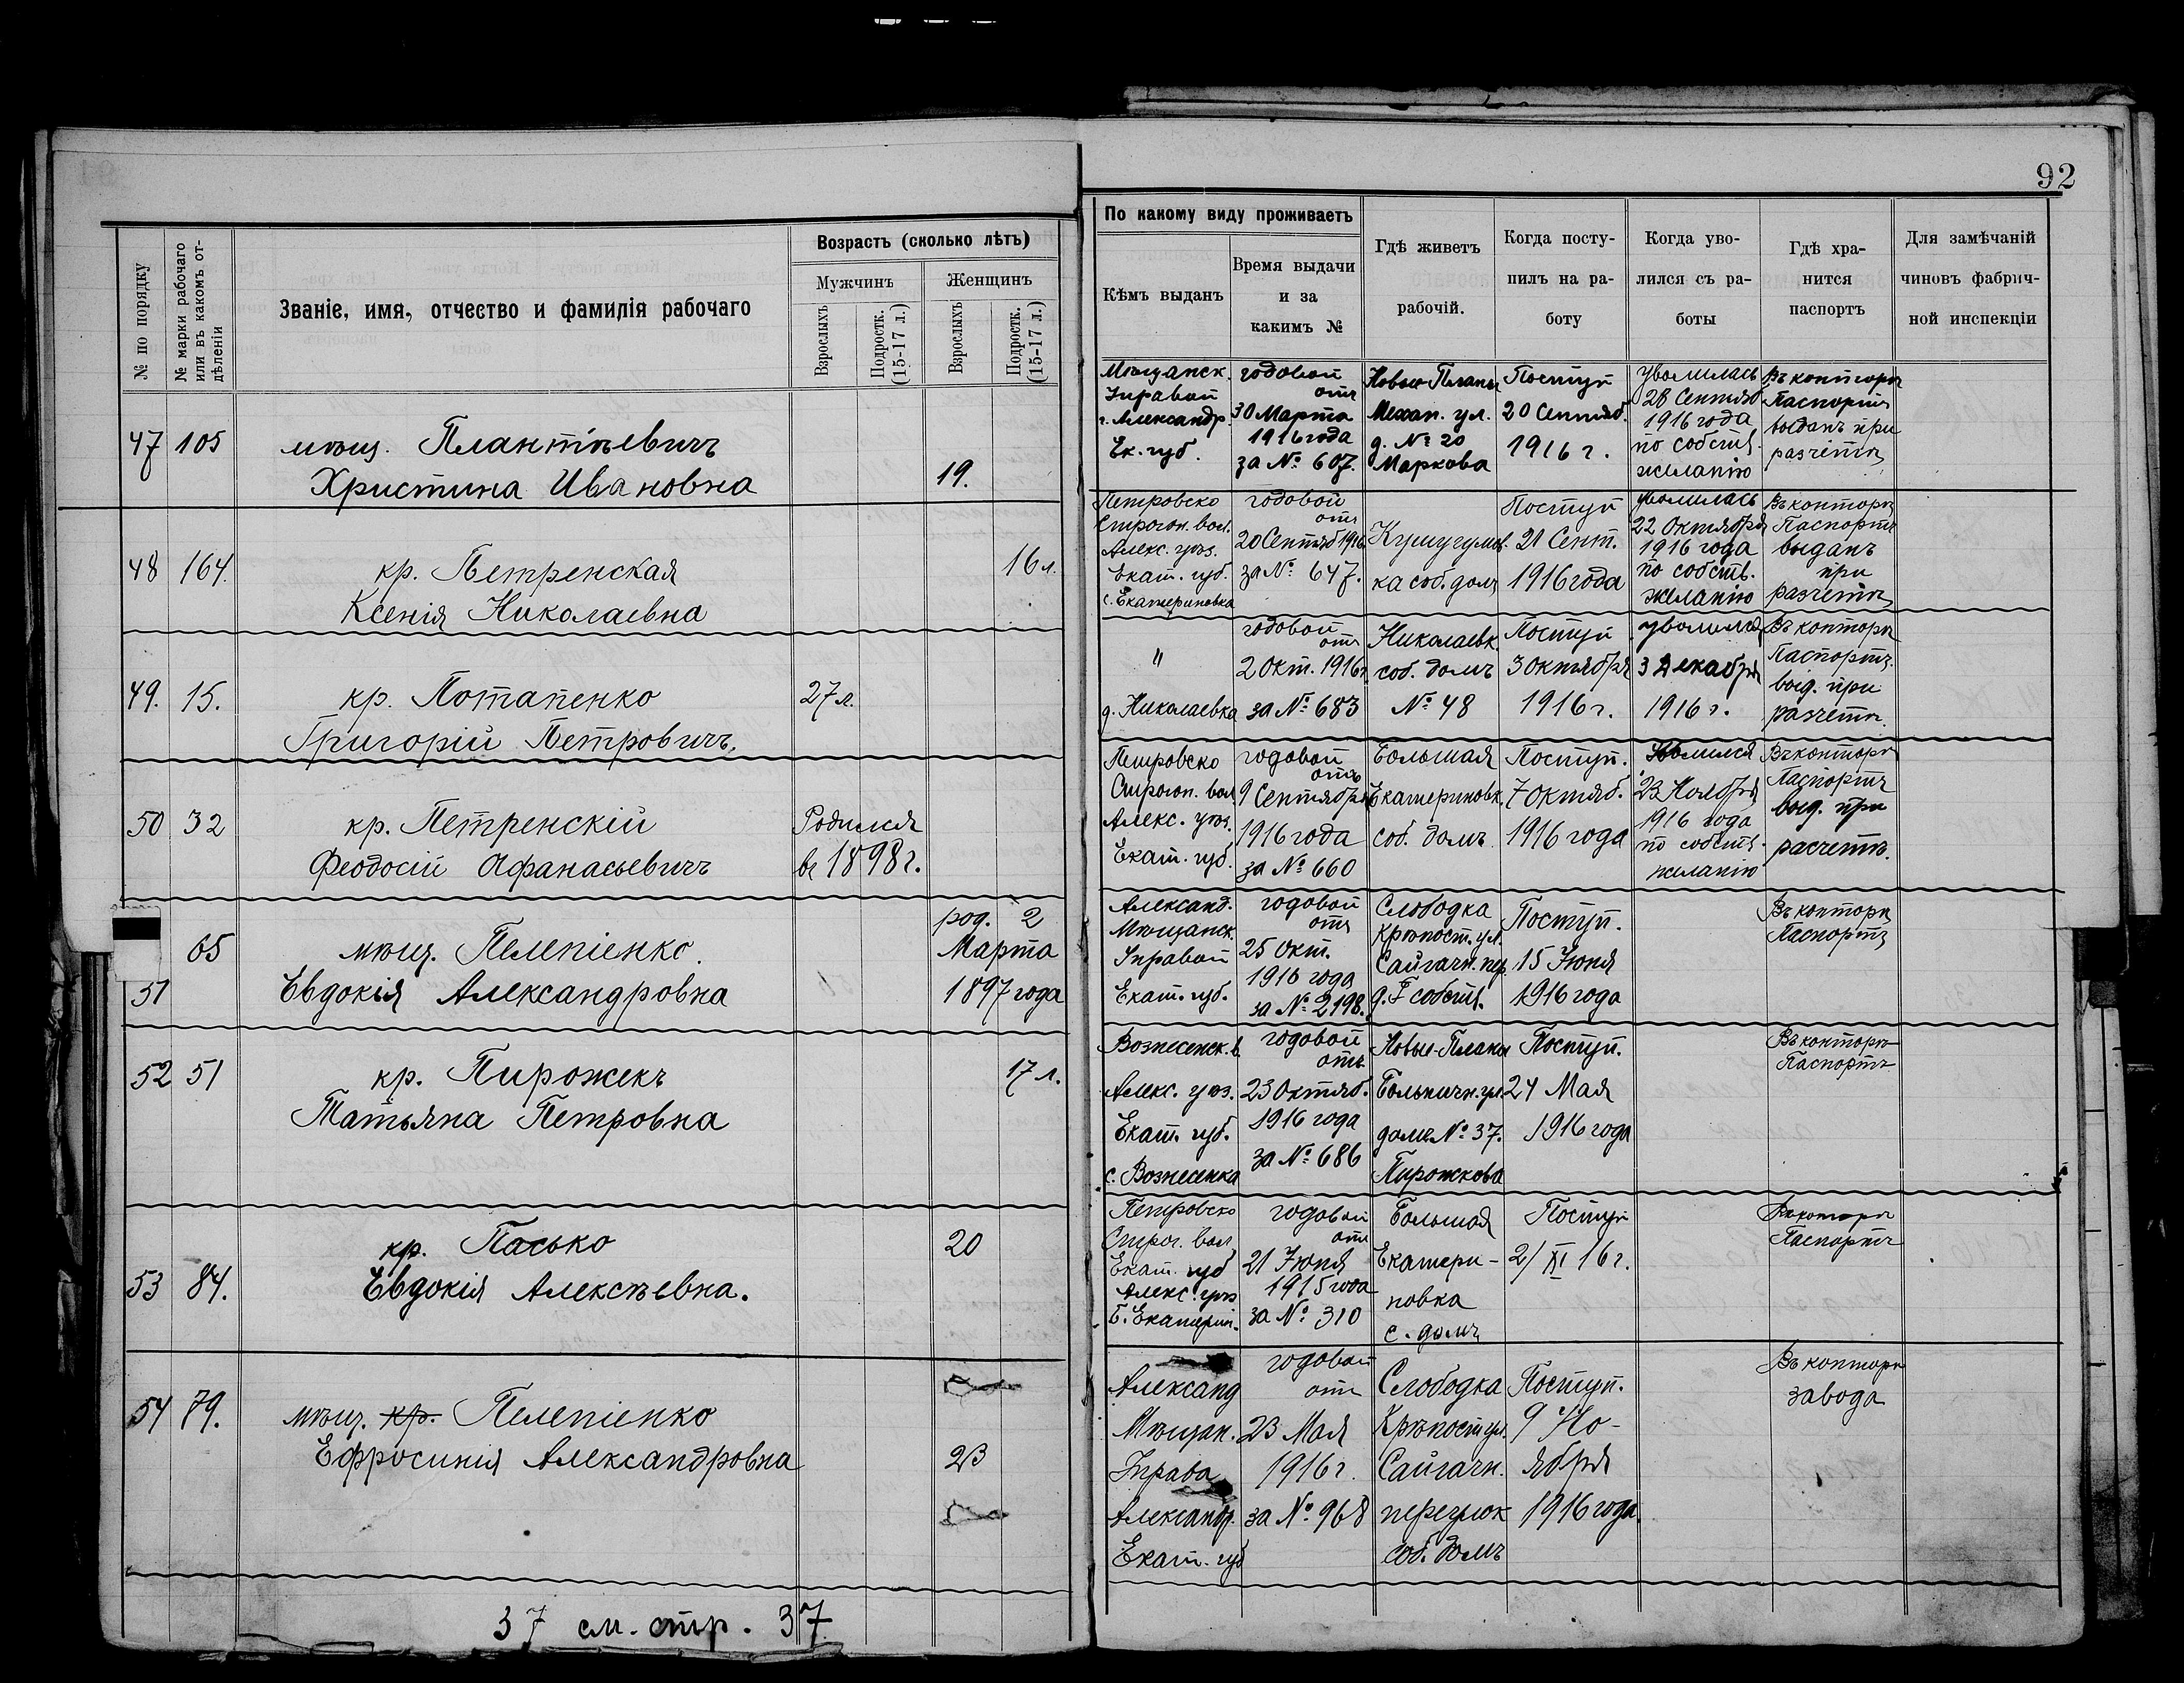 92
№ по порядку
№ марки рабочаго
или въ какомъ от-
дѣленіи
Званіе, имя, отчество и фамилія рабочаго
Возрастъ (сколько лѣтъ)
Мужчинъ
Женщинъ
Взрослыхъ
Подростк.
(15-17 л.)
Взрослыхъ
Подростк.
(15-17 л.)
По какому виду проживаетъ
Кѣмъ выданъ
Время выдачи
и за
какимъ №
Гдѣ живетъ
рабочій.
Когда посту-
пилъ на ра-
боту
Когда уво-
лился съ ра-
боты
Гдѣ хра-
нится
паспортъ
Для замѣчаній
чиновъ фабрич-
ной инспекціи
47 105
мѣщ. Плантіевичъ
Христина Ивановна
19.
Мѣщанск.
Управой
г. Александр.
Ек. губ.
годовой
отъ
30 Марта
1916 года
за № 607.
Новые Планы
Механ. ул.
д. № 20
Маркова
Поступ
20 Сентяб.
1916 г.
уволилась
28 Сентяб
1916 года
по собств.
желанію
Въ конторѣ
Паспортъ
выданъ при
разчетѣ
48 164.
кр. Петренская
Ксенія Николаевна
16 л.
Петровско
Строгон. вол.
Алекс. уѣз.
Екат. губ.
с. Екатериновка
годовой
отъ
20 Сентяб 1916
за № 647.
Кушугумов.
ка соб. домъ
Поступ
21 Сент.
1916 года
уволилась
22 Октября
1916 года
по собств.
желанію
Въ конторѣ
Паспортъ
выданъ
при
разчетѣ
49. 15.
кр. Потапенко
Григорій Петровичъ.
27 л.
"
д. Николаевка
годовой
отъ
2 Окт. 1916 г.
за № 683
Николаевк.
соб. домъ
№ 48
Поступ
3 Октября
1916 г.
уволился
3 Декабря
1916 г.
Въ конторѣ
Паспортъ.
выд. при
разчетѣ.
50 32
кр. Петренскій
Феодосій Афанасьевичъ
Родился
въ 1898 г.
Петровско
Строгон. вол
Алекс. уѣз.
Екат. губ.
годовой
отъ
9 Сентября
1916 года
за № 660
Большая
Екатериновк.
соб. домъ
Поступ.
7 Октяб.
1916 года
уволился
23 Ноября
1916 года
по собств.
желанію
Въ конторѣ
Паспортъ
выд. при
расчетѣ.
51
65
мѣщ. Пелепіенко.
Евдокія Александровна
род. 2
Марта
1897 года
Александ.
Мѣщанск.
Управой
Екат. губ.
годовой
отъ
25 Окт.
1916 года
за № 2198.
Слободка
Крѣпост. ул.
Сайгачн. пер.
собств.
Поступ.
15 Іюня
1916 года
Въ конторѣ
Паспортъ
52 51
кр. Пирожекъ
Татьяна Петровна
17 л.
Вознесенск. в.
Алекс. уѣз.
Екат. губ.
с. Вознесенка
годовой
отъ
23 Октяб.
1916 года
за № 686
Новые-Планы
Больничн. ул.
домъ № 37.
Пирожкова
Поступ.
24 Мая
1916 года
Въ конторѣ
Паспортъ
53 84.
кр. Пасько
Евдокія Алексѣевна.
20
Петровско
Строг. вол
Екат. губ
Алекс. уѣз
Б. Екатерин.
годовой
отъ
21 Іюня
1915 года
за № 310
Большая
Екатери-
новка
с. домъ
Поступ
2/XI 16 г.
Въ конторѣ
Паспортъ
54 79.
мѣщ. кр. Пелепіенко
Ефросинія Александровна
23
Александ
Мѣщан.
Управа
Александр.
Екат. губ
годовой
отъ
23 Мая
1916 г.
за № 968
Слободка
Крѣпост ул.
Сайгачн.
переулок
соб. домъ
Поступ.
9 Но-
ября
1916 года.
Въ конторѣ
завода
37 см. стр. 37